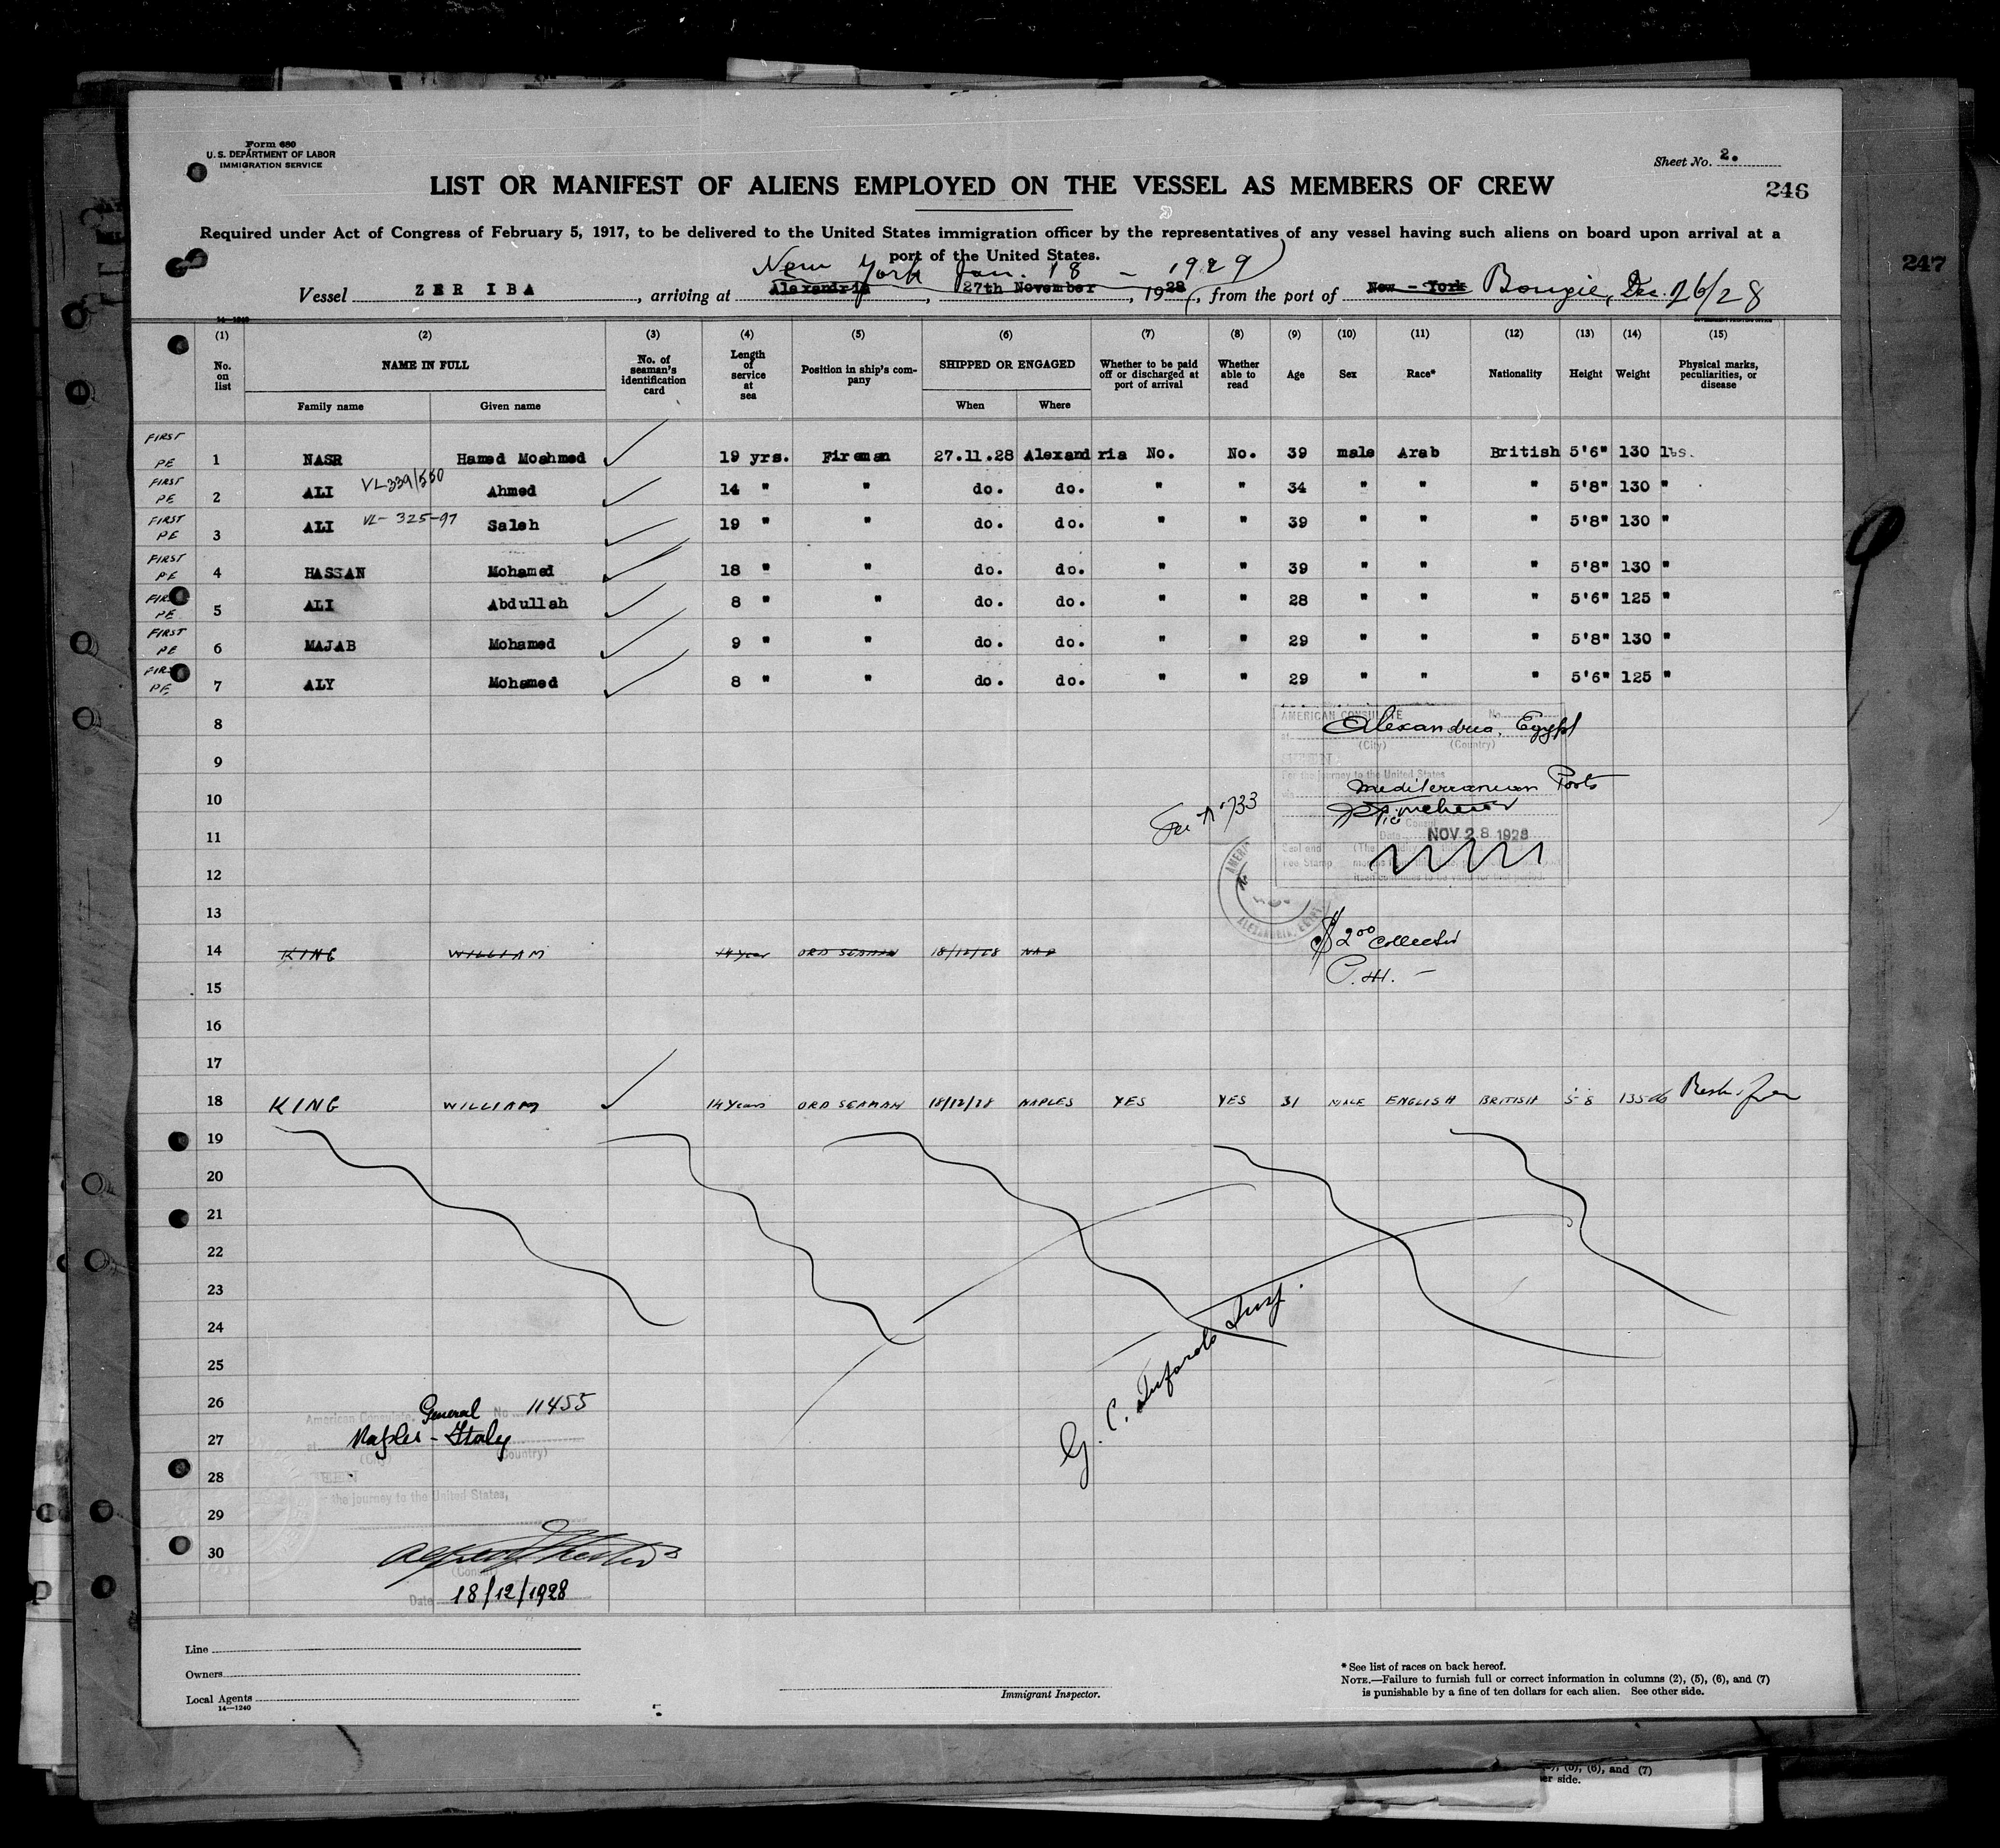 Form 680
U. S. DEPARTMENT OF LABOR
IMMIGRATION SERVICE
Sheet No. 2.
LIST OR MANIFEST OF ALIENS EMPLOYED ON THE VESSEL AS MEMBERS OF CREW
246
Required under Act of Congress of February 5, 1917, to be delivered to the United States immigration officer by the representatives of any vessel having such aliens on board upon arrival at a
port of the United States.
New York Jan. 18 - 1929
Vessel ZER IBA, arriving at Alexandria, 27th November, 1928, from the port of New-York Bougie, Dec. 26/28
247
(1) (2) (3) (4) (5) (6) (7) (8) (9) (10) (11) (12) (13) (14) (15)
No. on list NAME IN FULL No. of seaman's identification card Length of service at sea Position in ship's company SHIPPED OR ENGAGED Whether to be paid off or discharged at port of arrival Whether able to read Age Sex Race* Nationality Height Weight Physical marks, peculiarities, or disease
Family name Given name When Where
FIRST PE 1 NASR Hamed Moahmed 19 yrs. Fireman 27.11.28 Alexandria No. No. 39 male Arab British 5'6" 130 lbs.
FIRST PE 2 ALI VL339/550 Ahmed 14 " " do. do. " " 34 " " " 5'8" 130 "
FIRST PE 3 ALI VL-325-97 Saleh 19 " " do. do. " " 39 " " " 5'8" 130 "
FIRST PE 4 HASSAN Mohamed 18 " " do. do. " " 39 " " " 5'8" 130 "
FIRST PE 5 ALI Abdullah 8 " " do. do. " " 28 " " " 5'6" 125 "
FIRST PE 6 MAJAB Mohamed 9 " " do. do. " " 29 " " " 5'8" 130 "
FIRST PE 7 ALY Mohamed 8 " " do. do. " " 29 " " " 5'6" 125 "
8
AMERICAN CONSULATE No.
Alexandria, Egypt
(City) (Country)
9
For the journey to the United States
10
Mediterranean Ports
11
Date NOV 28 1928
12
13
ALEXANDRIA, EGYPT
14 KING WILLIAM 14 Year ORD SEAMAN 18/12/28 NAP
$2.00 collected
15
16
17
18 KING WILLIAM 14 Years ORD SEAMAN 18/12/28 NAPLES YES YES 31 MALE ENGLISH BRITISH 5-8 135
19
20
21
22
23
24
25
26
American Consulate General No 11455
27
Naples - Italy
(City) (Country)
28
the journey to the United States,
29
30
(Consul)
Date 18/12/1928
Line
Owners
Local Agents
14—1240
Immigrant Inspector.
* See list of races on back hereof.
NOTE.—Failure to furnish full or correct information in columns (2), (5), (6), and (7)
is punishable by a fine of ten dollars for each alien. See other side.
(5), (6), and (7)
er side.